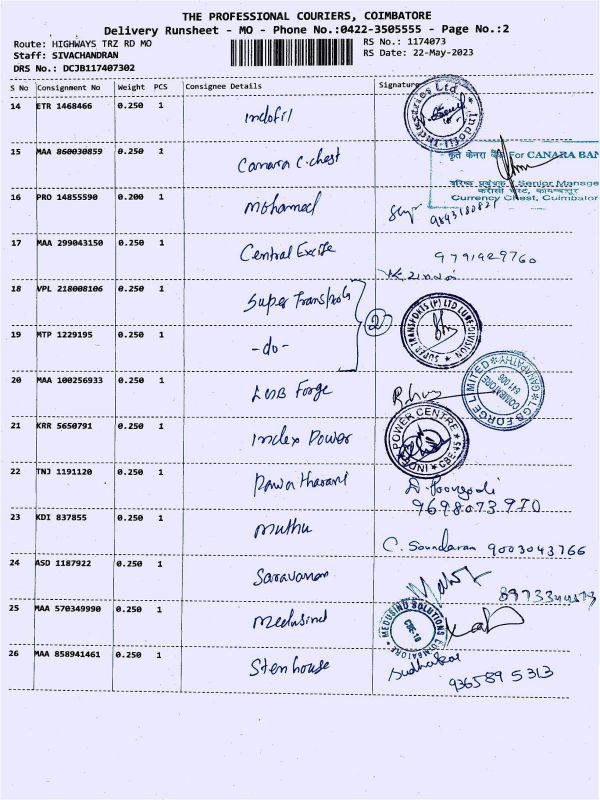 THE PROFESSIONAL COURIERS, COIMBATORE
Delivery Runsheet - MO - Phone No.:0422-3505555 - Page No.:2
Route: HIGHWAYS TRZ RD MO
RS No.: 1174073
Staff: SIVACHANDRAN
RS Date: 22-May-2023
DRS No.: DCJB117407302
S No Consignment No Weight PCS Consignee Details Signature
14 ETR 1468466 0.250 1 Indofil
15 MAA 860030859 0.250 1 Canara C. chest
कृते केनरा बैंक For CANARA BAN
Senior Manage
Currency Chest, Coimbator
16 PRO 14855590 0.200 1 Mohamed
17 MAA 299043150 0.250 1 Central Excise 9791929760
18 VPL 218008106 0.250 1 Super Transports
SUPER TRANSPORTS (P) LTD LUBE DIVISION
19 MTP 1229195 0.250 1 -do- 2
20 MAA 100256933 0.250 1 LGB Forge
LGB FORGE LIMITED GANAPATHY COIMBATORE 641 006
21 KRR 5650791 0.250 1 Index Power
INDEX POWER CENTRE CBE-45
22 TNJ 1191120 0.250 1
9698073970
23 KDI 837855 0.250 1 Muthu C. Soundaran 9003043766
24 ASD 1187922 0.250 1 Saravanan
25 MAA 570349990 0.250 1 Medusind
MEDUSIND SOLUTIONS COIMBATORE CBE-18
26 MAA 858941461 0.250 1 Stenhouse Sudhakar
936589 5313